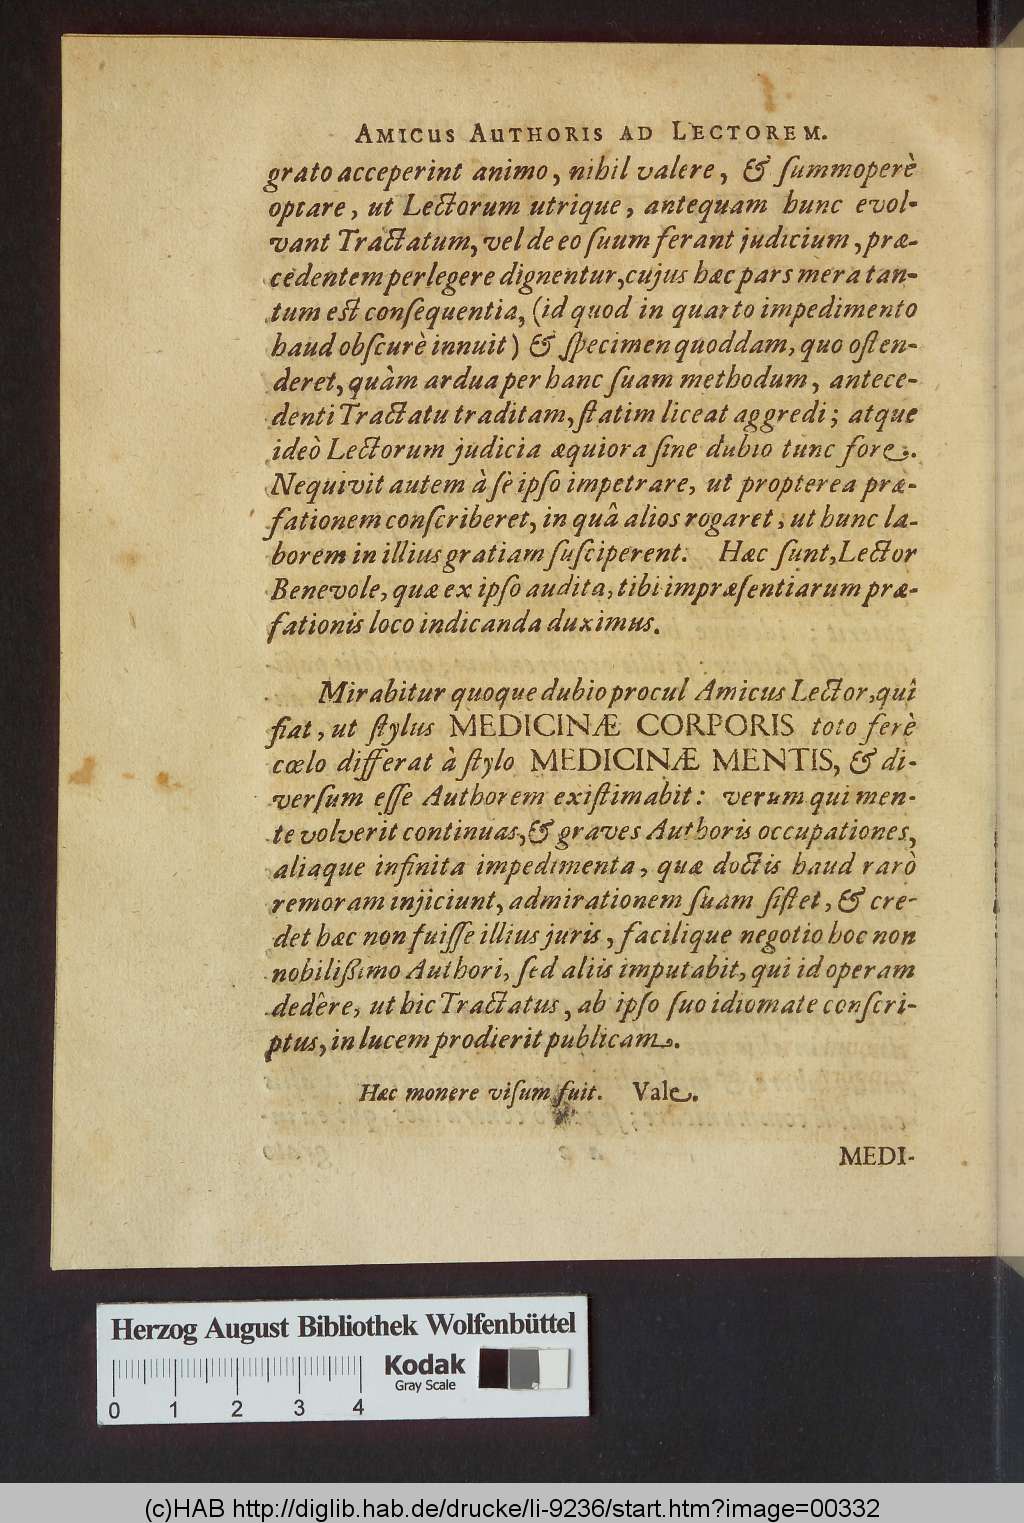 AMICUS AUTHORIS AD LECTOREM.
grato acceperint animo, nihil valere, & ſummoperè
optare, ut Lectorum utrique, antequam hunc evol-
vant Tractatum, vel de eo ſuum ferant judicium, præ-
cedentem perlegere dignentur, cujus hæc pars mera tan-
tum est conſequentia, (id quod in quarto impedimento
haud obſcurè innuit) & ſpecimen quoddam, quo oſten-
deret, quàm ardua per hanc ſuam methodum, antece-
denti Tractatu traditam, ſtatim liceat aggredi; atque
ideò Lectorum judicia æquiora ſine dubio tunc fore.
Nequivit autem à ſè ipſo impetrare, ut propterea præ-
fationem conſcriberet, in quâ alios rogaret, ut hunc la-
borem in illius gratiam ſuſciperent. Hæc ſunt, Lector
Benevole, quæ ex ipſo audita, tibi impræſentiarum præ-
fationis loco indicanda duximus.
Mirabitur quoque dubio procul Amicus Lector, quî
fiat, ut ſtylus MEDICINÆ CORPORIS toto ferè
cœlo differat à ſtylo MEDICINÆ MENTIS, & di-
verſum eſſe Authorem exiſtimabit: verum qui men-
te volverit continuas, & graves Authoris occupationes,
aliaque infinita impedimenta, quæ doctis haud rarò
remoram injiciunt, admirationem ſuam ſiſtet, & cre-
det hæc non fuiſſe illius juris, facilique negotio hoc non
nobilißimo Authori, ſed aliis imputabit, qui id operam
dedêre, ut hic Tractatus, ab ipſo ſuo idiomate conſcri-
ptus, in lucem prodierit publicam.
Hæc monere viſum fuit. Vale.
MEDI-
Herzog August Bibliothek Wolfenbüttel
Kodak
Gray Scale
0 1 2 3 4
(c)HAB http://diglib.hab.de/drucke/li-9236/start.htm?image=00332